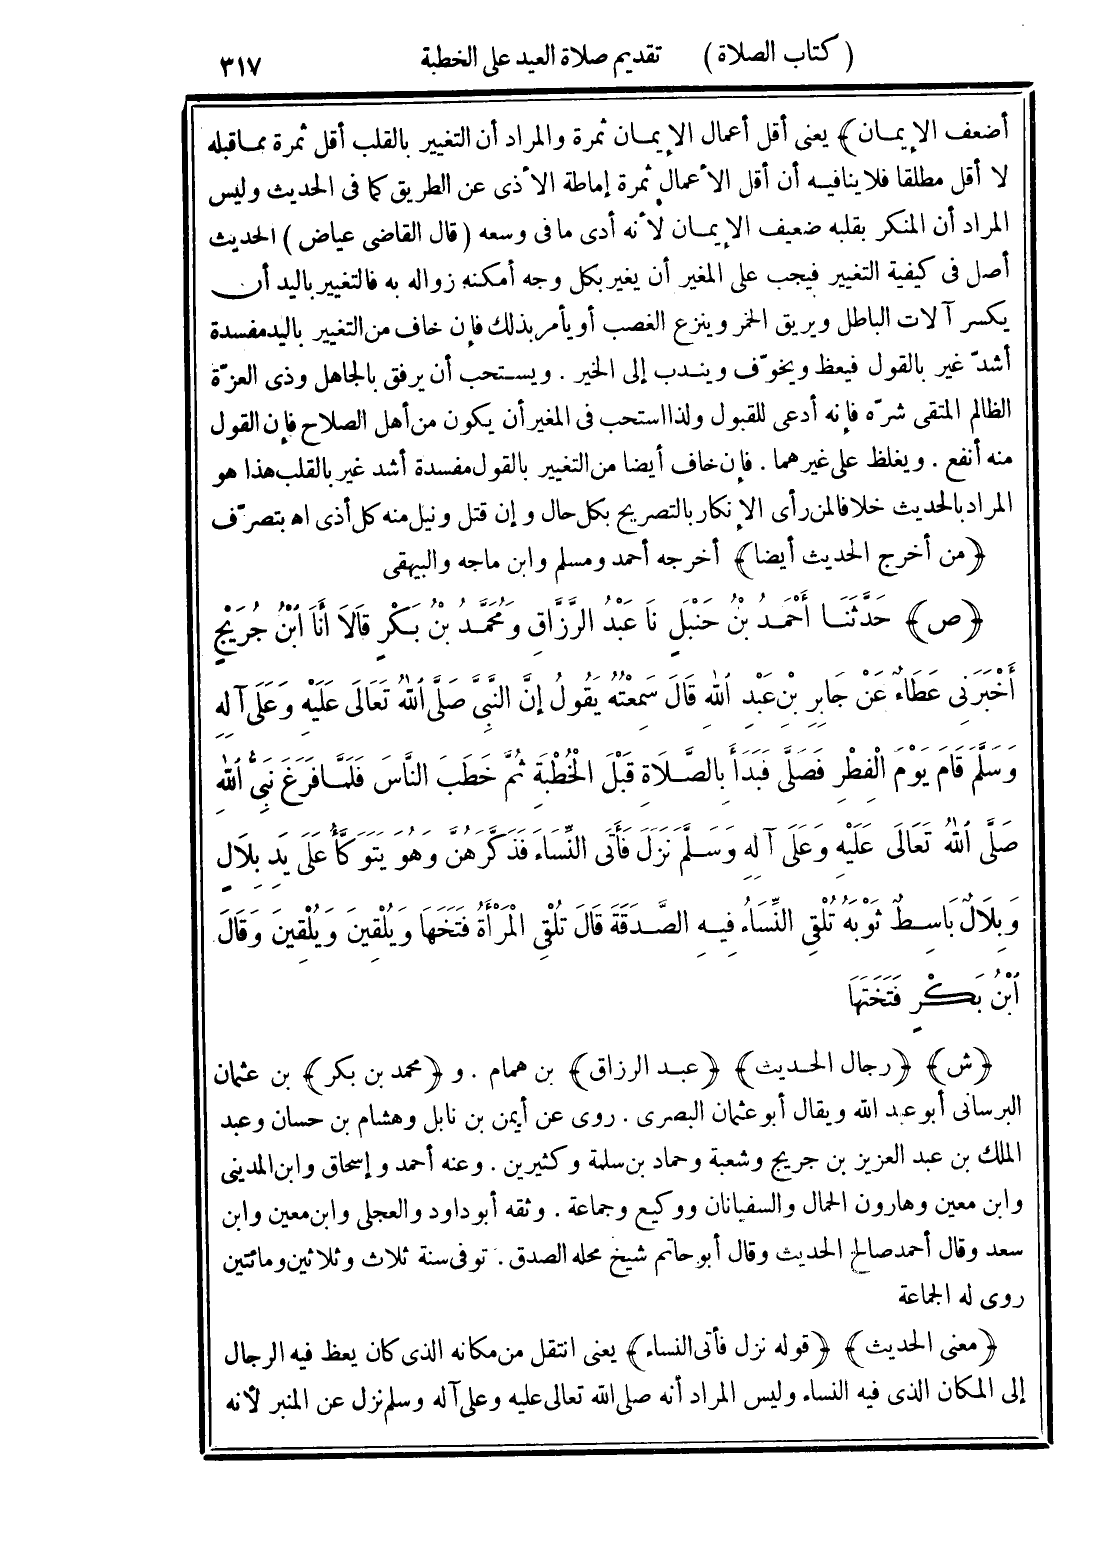 ( كتاب الصلاة ) تقديم صلاة العيد على الخطبة ٣١٧
أضعف الإيمـان﴾ يعنى أقل أعمال الإيمـان ثمرة والمراد أن التغيير بالقلب أقل ثمرة ممـاقبله
لا أقل مطلقا فلا ينافيـه أن أقل الأعمال ثمرة إماطة الأذى عن الطريق كما فى الحديث وليس
المراد أن المنكر بقلبه ضعيف الإيمـان لأنه أدى ما فى وسعه ( قال القاضى عياض ) الحديث
أصل فى كيفية التغيير فيجب على المغير أن يغير بكل وجه أمكنه زواله به فالتغيير باليد أن
يكسر آلات الباطل ويريق الخمر وينزع الغصب أو يأمر بذلك فإن خاف من التغيير باليد مفسدة
أشدّ غير بالقول فيعظ ويخوّف ويندب إلى الخير . ويستحب أن يرفق بالجاهل وذى العزّة
الظالم المتقى شرّه فإنه أدعى للقبول ولذا استحب فى المغير أن يكون من أهل الصلاح فإن القول
منه أنفع . ويغلظ على غيرهما . فإن خاف أيضا من التغيير بالقول مفسدة أشد غير بالقلب هذا هو
المراد بالحديث خلافا لمن رأى الإنكار بالتصريح بكل حال وإن قتل ونيل منه كل أذى اه بتصرّف
﴿من أخرج الحديث أيضا﴾ أخرجه أحمد ومسلم وابن ماجه والبيهقى
﴿ص﴾ حَدَّثَنَـا أَحْمَـدُ بْنُ حَنْبَلٍ نَا عَبْدُ الرَّزَّاقِ وَمُحَمَّـدُ بْنُ بَـكْرٍ قَالَا أَنَا ابْنُ جُرَيْجٍ
أَخْبَرَنِى عَطَاءٌ عَنْ جَابِرِ بْنِ عَبْدِ اللهِ قَالَ سَمِعْتُهُ يَقُولُ إِنَّ النَّبِىَّ صَلَّى اللهُ تَعَالَى عَلَيْهِ وَعَلَى آلِهِ
وَسَلَّمَ قَامَ يَوْمَ الْفِطْرِ فَصَلَّى فَبَدَأَ بِالصَّـلَاةِ قَبْلَ الْخُطْبَةِ ثُمَّ خَطَبَ النَّاسَ فَلَمَّـا فَرَغَ نَبِىُّ اللهِ
صَلَّى اللهُ تَعَالَى عَلَيْهِ وَعَلَى آلِهِ وَسَـلَّمَ نَزَلَ فَأَتَى النِّسَاءَ فَذَكَّرَهُنَّ وَهُوَ يَتَوَكَّأُ عَلَى يَدِ بِلَالٍ
وَبِلَالٌ بَاسِـطٌ ثَوْبَهُ تُلْقِى النِّسَاءُ فِيـهِ الصَّـدَقَةَ قَالَ تُلْقِى الْمَرْأَةُ فَتَخَهَا وَيُلْقِينَ وَيُلْقِينَ وَقَالَ
ابْنُ بَـكْرٍ فَتَخَتَهَا
﴿ش﴾ ﴿رجال الحـديث﴾ ﴿عبـد الرزاق﴾ بن همام . و ﴿محمد بن بكر﴾ بن عثمان
البرسانى أبو عبد الله ويقال أبو عثمان البصرى . روى عن أيمن بن نابل وهشام بن حسان وعبد
الملك بن عبد العزيز بن جريج وشعبة وحماد بن سلمة وكثيرين . وعنه أحمد وإسحاق وابن المدينى
وابن معين وهارون الحمال والسفيانان ووكيع وجماعة . وثقه أبو داود والعجلى وابن معين وابن
سعد وقال أحمد صالح الحديث وقال أبو حاتم شيخ محله الصدق . توفى سنة ثلاث وثلاثين ومائتين
روى له الجماعة
﴿معنى الحديث﴾ ﴿قوله نزل فأتى النساء﴾ يعنى انتقل من مكانه الذى كان يعظ فيه الرجال
إلى المكان الذى فيه النساء وليس المراد أنه صلى الله تعالى عليه وعلى آله وسلم نزل عن المنبر لأنه